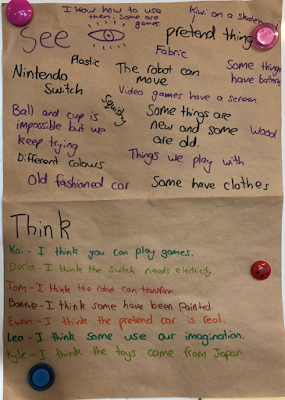 I know how to use
them. Some are
games
Kiwi on a skateboard
See
pretend thing
Fabric
Plastic
Some things
have battery
Nintendo
Switch
The robot can
move
Video games have a screen
Squishy
Ball and cup is
impossible but we
keep trying
Some things are
new and some
are old.
Wood
Different colours
Things we play with
Old fashioned car
Some have clothes
Think
Kai - I think you can play games.
I think the switch needs electricity.
Tom - I think the robot can transform.
Bonnie - I think some have been painted.
Ewan - I think the pretend car is real.
Leo - I think some use our imagination.
Kyle - I think the toys came from Japan